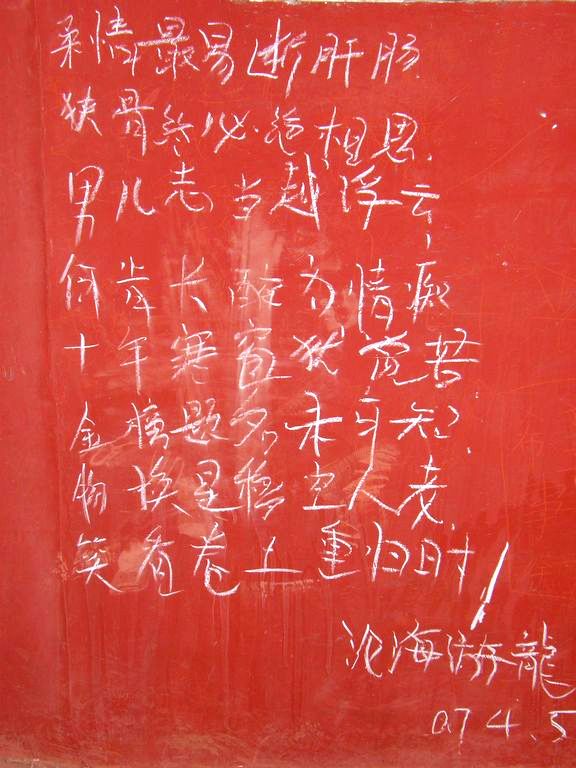 柔情最易断肝肠
侠骨终必绝相思,
男儿志当越浮云,
何岁长醉为情痴
十年寒窗犹觉苦
金榜题名未可知,
物换星移空人老,
笑看卷土重归时!
沧海游龍
07 4.5